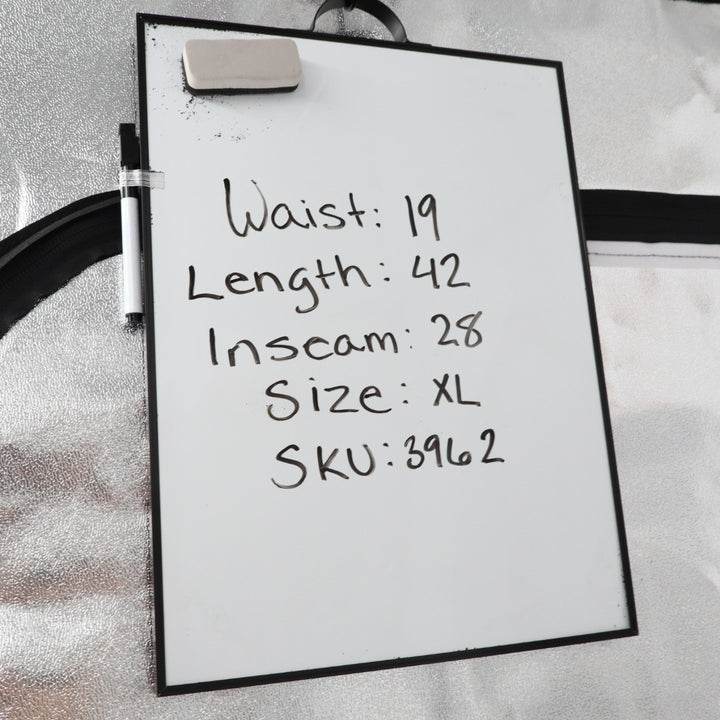 Waist: 19
Length: 42
Inseam: 28
Size: XL
SKU: 3962